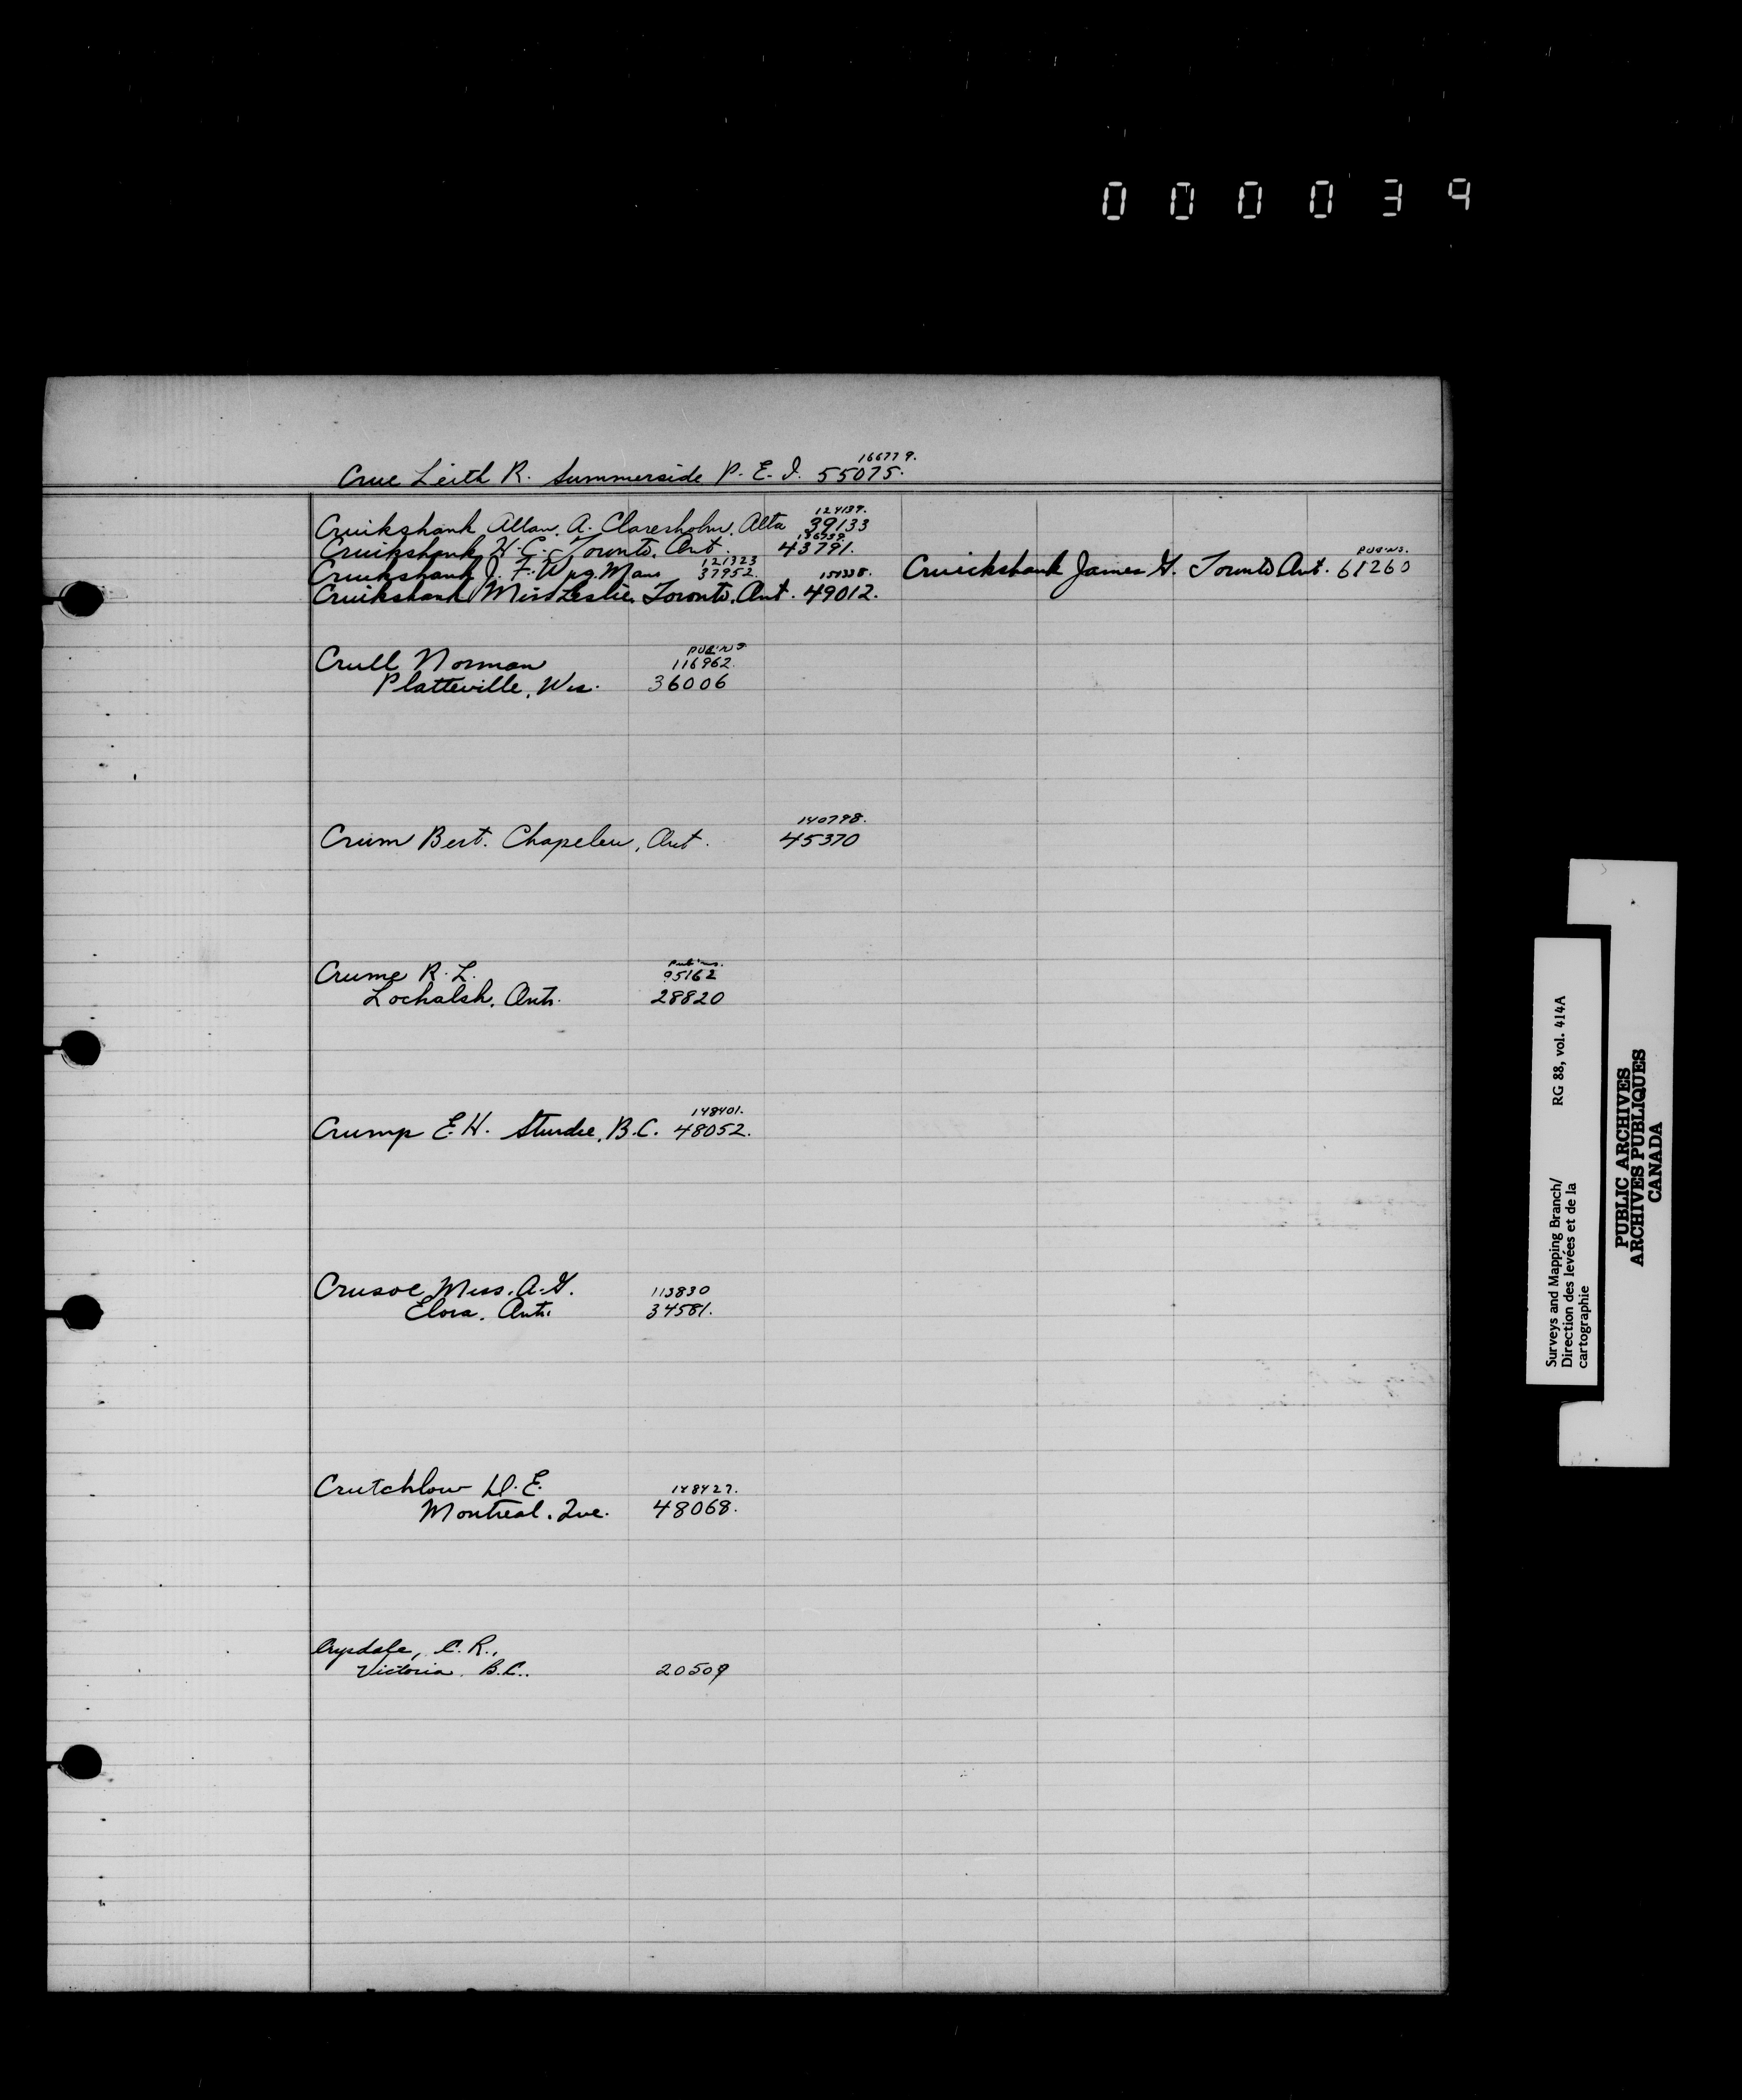 000039
166779.
Crue Leith R. Summerside P.E.I. 55075.
124139.
Cruikshank Allan. A. Claresholm. Alta 39133
Cruikshank H.C. Toronto. Ont. 43791.
121323
Cruikshank J. F. Wpg. Man 37952.
Cruikshank Miss Leslie. Toronto. Ont. 49012.
PUB'NS.
Cruickshank James G. Toronto Ont. 61260
PUB'NS
Crull Norman 116962.
Platteville, Wis. 36006
140798.
Crum Bert. Chapeleu, Ont. 45370
Pub'ns.
Crume R.L. 95162
Lochalsh. Ont. 28820
148401.
Crump E.H. Sturdie, B.C. 48052.
Crusoe, Miss. A.G. 113830
Elora. Ont. 34581.
Crutchlow D.E. 148427.
Montreal. Que. 48068.
Crysdale, C.R.,
Victoria. B.C.. 20509
Surveys and Mapping Branch/ RG 88, vol. 414A
Direction des levées et de la
cartographie
PUBLIC ARCHIVES
ARCHIVES PUBLIQUES
CANADA